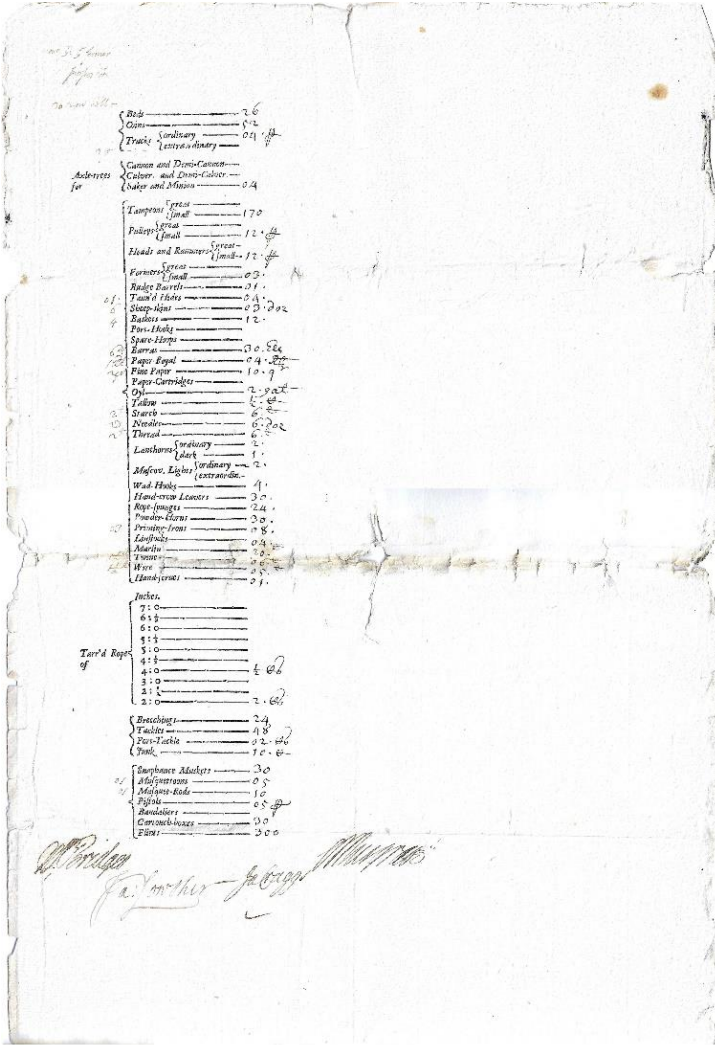 Beds 26
Coins 52
Trucks { ordinary 04
extraordinary
Axle-trees for { Cannon and Demi-Cannon
Culver. and Demi-Culver.
Saker and Minion 04
Tampeons { great
small 170
Pulleys { great
small 12.
Heads and Rammers { great
small 12.
Formers { great
small 03.
Budge Barrels 01.
Tann'd Hides 04.
Sheep-skins 03. doz
Baskets 12.
Port-Hooks
Spare-Hoops
Barras 30. Ells
Paper-Royal 04.
Fine Paper 10. q
Paper-Cartridges
Oyl 2. gal
Tallow ½.
Starch 6.
Needles 6. doz
Thread 6.
Lanthorns { ordinary 2.
dark 1.
Muscov. Lights { ordinary 2.
extraordin.
Wad-Hooks 4.
Hand-crow Leavers 30.
Rope-spunges 24.
Powder-Horns 30.
Priming-Irons 08.
Linstocks 04
Marlin 20.
Twine
Wire 05.
Hand-screws 01.
Inches.
7 : 0
6 : ½
6 : 0
5 : ½
5 : 0
Tarr'd Rope of { 4 : ½
4 : 0 ½
3 : 0
2 : ½
2 : 0 2.
Breechings 24
Tackles 48
Port-Tackle 02.
Junk 10.
Snaphance Muskets 30
Musquetoons 05
Musquet-Rods 10
Pistols 05
Bandaliers
Cartouch-boxes 30
Flints 300
Wm Bridges
Ja: Lowther Ja Craggs